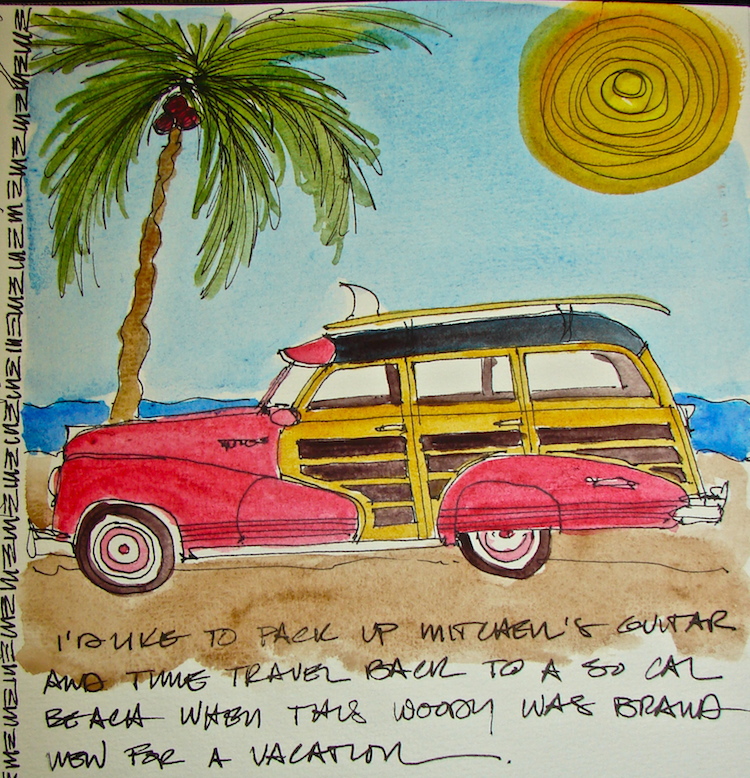 I'D LIKE TO PACK UP MITCHELL'S GUITAR
AND TIME TRAVEL BACK TO A SO CAL
BEACH WHEN THIS WOODY WAS BRAND
NEW FOR A VACATION